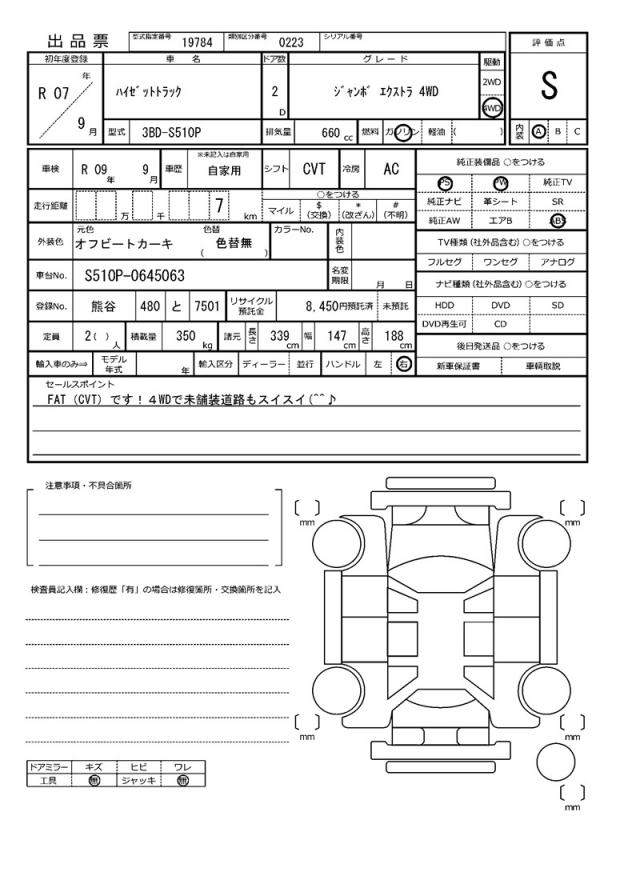 出品票 型式指定番号 19784 類別区分番号 0223 シリアル番号
評価点
S
初年度登録 車名 ドア数 グレード 駆動
R 07 年 9 月 ハイゼットトラック 2 D ジャンボ エクストラ 4WD 2WD 4WD
型式 3BD-S510P 排気量 660 cc 燃料 ガソリン 軽油 ( ) 内装 A B C
車検 R 09 年 9 月 車歴 ※未記入は自家用 自家用 シフト CVT 冷房 AC 純正装備品 ○をつける
PS PW 純正TV
走行距離 万 千 7 km ○をつける 純正ナビ 革シート SR
マイル $(交換) *(改ざん) #(不明) 純正AW エアB ABS
外装色 元色 オフビートカーキ 色替 色替無 ( ) カラーNo. 内装色 TV種類(社外品含む)○をつける
フルセグ ワンセグ アナログ
車台No. S510P-0645063 名変期限 月 日 ナビ種類(社外品含む)○をつける
登録No. 熊谷 480 と 7501 リサイクル預託金 8,450円預託済 未預託 HDD DVD SD
DVD再生可 CD
定員 2( )人 積載量 350 kg 諸元 長さ 339 cm 幅 147 cm 高さ 188 cm 後日発送品 ○をつける
輸入車のみ⇒ モデル年式 年 輸入区分 ディーラー 並行 ハンドル 左 右 新車保証書 車輌取説
セールスポイント
FAT（CVT）です！４WDで未舗装道路もスイスイ(^^♪
注意事項・不具合箇所
〔 〕mm 〔 〕mm
検査員記入欄：修復歴「有」の場合は修復箇所・交換箇所を記入
〔 〕mm 〔 〕mm
ドアミラー キズ ヒビ ワレ
工具 無 ジャッキ 無
〔 〕mm